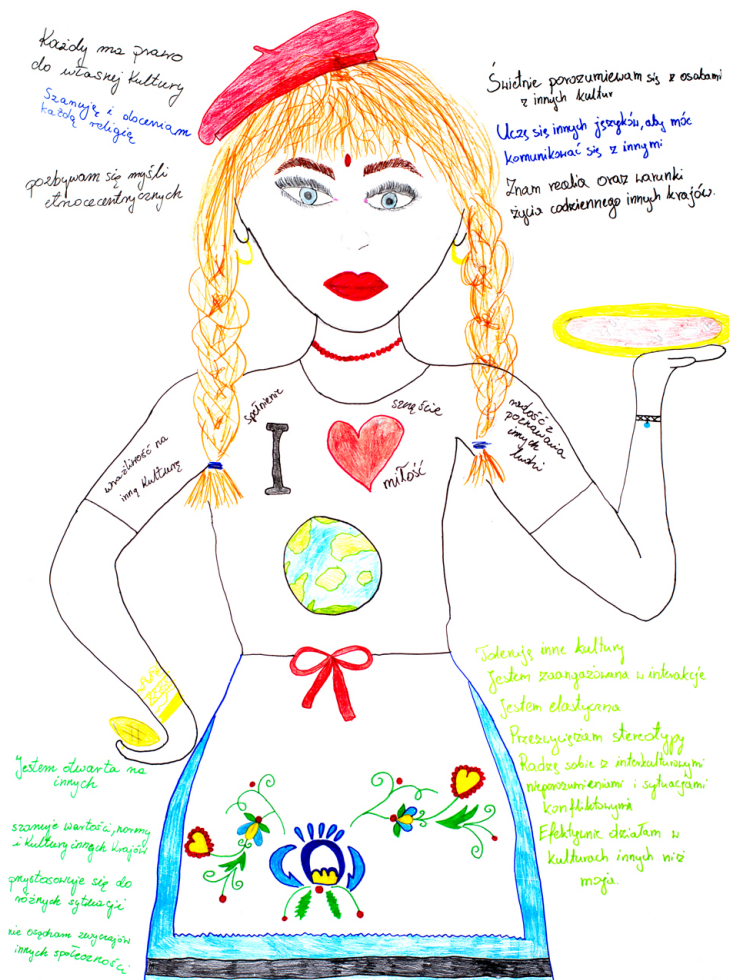 Każdy ma prawo
do własnej kultury
Szanuję i doceniam
każdą religię
pozbywam się myśli
etnocecentrycznych
Świetnie porozumiewam się z osobami
z innych kultur
Uczę się innych języków, aby móc
komunikować się z innymi
Znam realia oraz warunki
życia codziennego innych krajów.
wrażliwość na
inną kulturę
spełnienie
I
szczęście
miłość
radość z
poznawania
innych
ludzi
Toleruję inne kultury
Jestem zaangażowana w interakcje
Jestem elastyczna
Przezwyciężam stereotypy
Radzę sobie z interkulturowymi
nieporozumieniami i sytuacjami
konfliktowymi
Efektywnie działam w
kulturach innych niż
moja.
Jestem otwarta na
innych
szanuje wartości, normy
i kultury innych krajów
przystosowuje się do
różnych sytuacji
nie osądzam zwyczajów
innych społeczności